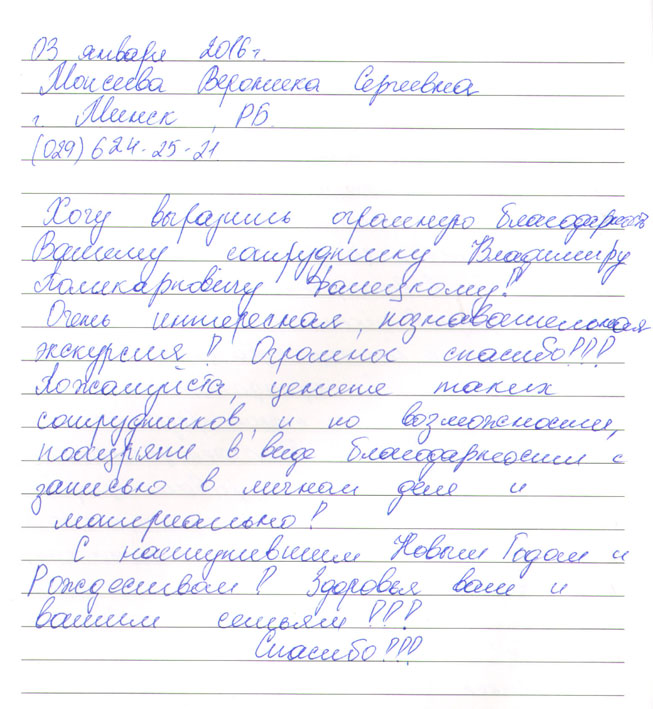 03 января 2016г.
Моисеева Вероника Сергеевна
г. Минск, РБ.
(029) 624-25-21
Хочу выразить огромную благодарность
Вашему сотруднику Владимиру
Поликарповичу!
Очень интересная, познавательная
экскурсия! Огромное спасибо!!!
Пожалуйста, цените таких
сотрудников, и по возможности,
поощряйте в виде благодарности с
записью в личном деле и
материально!
С наступившим Новым Годом и
Рождеством! Здоровья вам и
вашим семьям!!!
Спасибо!!!